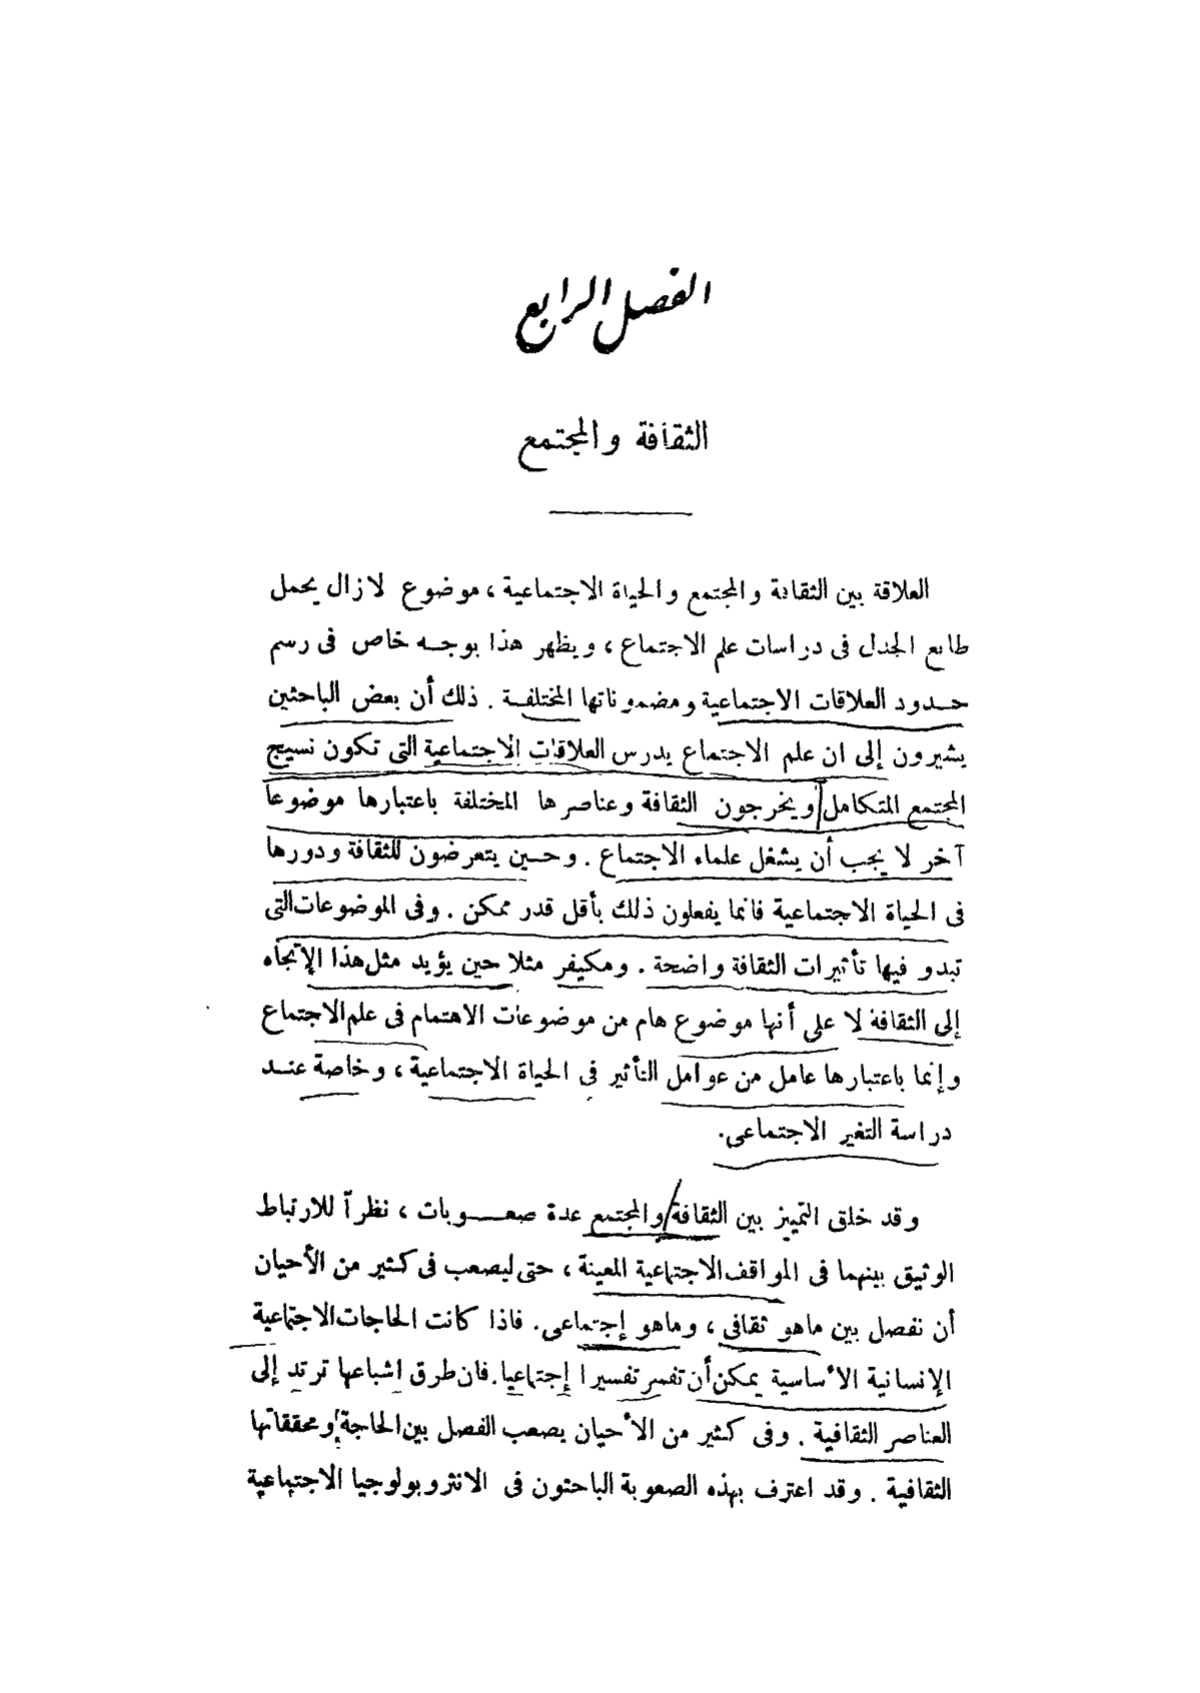 الفصل الرابع
الثقافة والمجتمع
العلاقة بين الثقافة والمجتمع والحياة الاجتماعية ، موضوع لازال يحمل
طابع الجدل فى دراسات علم الاجتماع ، ويظهر هذا بوجه خاص فى رسم
حدود العلاقات الاجتماعية ومضموناتها المختلفة . ذلك أن بعض الباحثين
يشيرون إلى ان علم الاجتماع يدرس العلاقات الاجتماعية التى تكون نسيج
المجتمع المتكامل ويخرجون الثقافة وعناصرها المختلفة باعتبارها موضوعا
آخر لا يجب أن يشغل علماء الاجتماع . وحين يتعرضون للثقافة ودورها
فى الحياة الاجتماعية فانما يفعلون ذلك بأقل قدر ممكن . وفى الموضوعات التى
تبدو فيها تأثيرات الثقافة واضحة . ومكيفر مثلا حين يؤيد مثل هذا الإتجاه
إلى الثقافة لا على أنها موضوع هام من موضوعات الاهتمام فى علم الاجتماع
وإنما باعتبارها عامل من عوامل التأثير فى الحياة الاجتماعية ، وخاصة عند
دراسة التغير الاجتماعى.
وقد خلق التمييز بين الثقافة والمجتمع عدة صعوبات ، نظرآ للارتباط
الوثيق بينهما فى المواقف الاجتماعية المعينة ، حتى ليصعب فى كثير من الأحيان
أن نفصل بين ماهو ثقافى ، وماهو إجتماعى. فاذا كانت الحاجات الاجتماعية
الإنسانية الأساسية يمكن أن تفسر تفسيرا إجتماعيا. فان طرق اشباعها ترتد إلى
العناصر الثقافية . وفى كثير من الأحيان يصعب الفصل بين الحاجة ومحققاتها
الثقافية . وقد اعترف بهذه الصعوبة الباحثون فى الانثروبولوجيا الاجتماعية